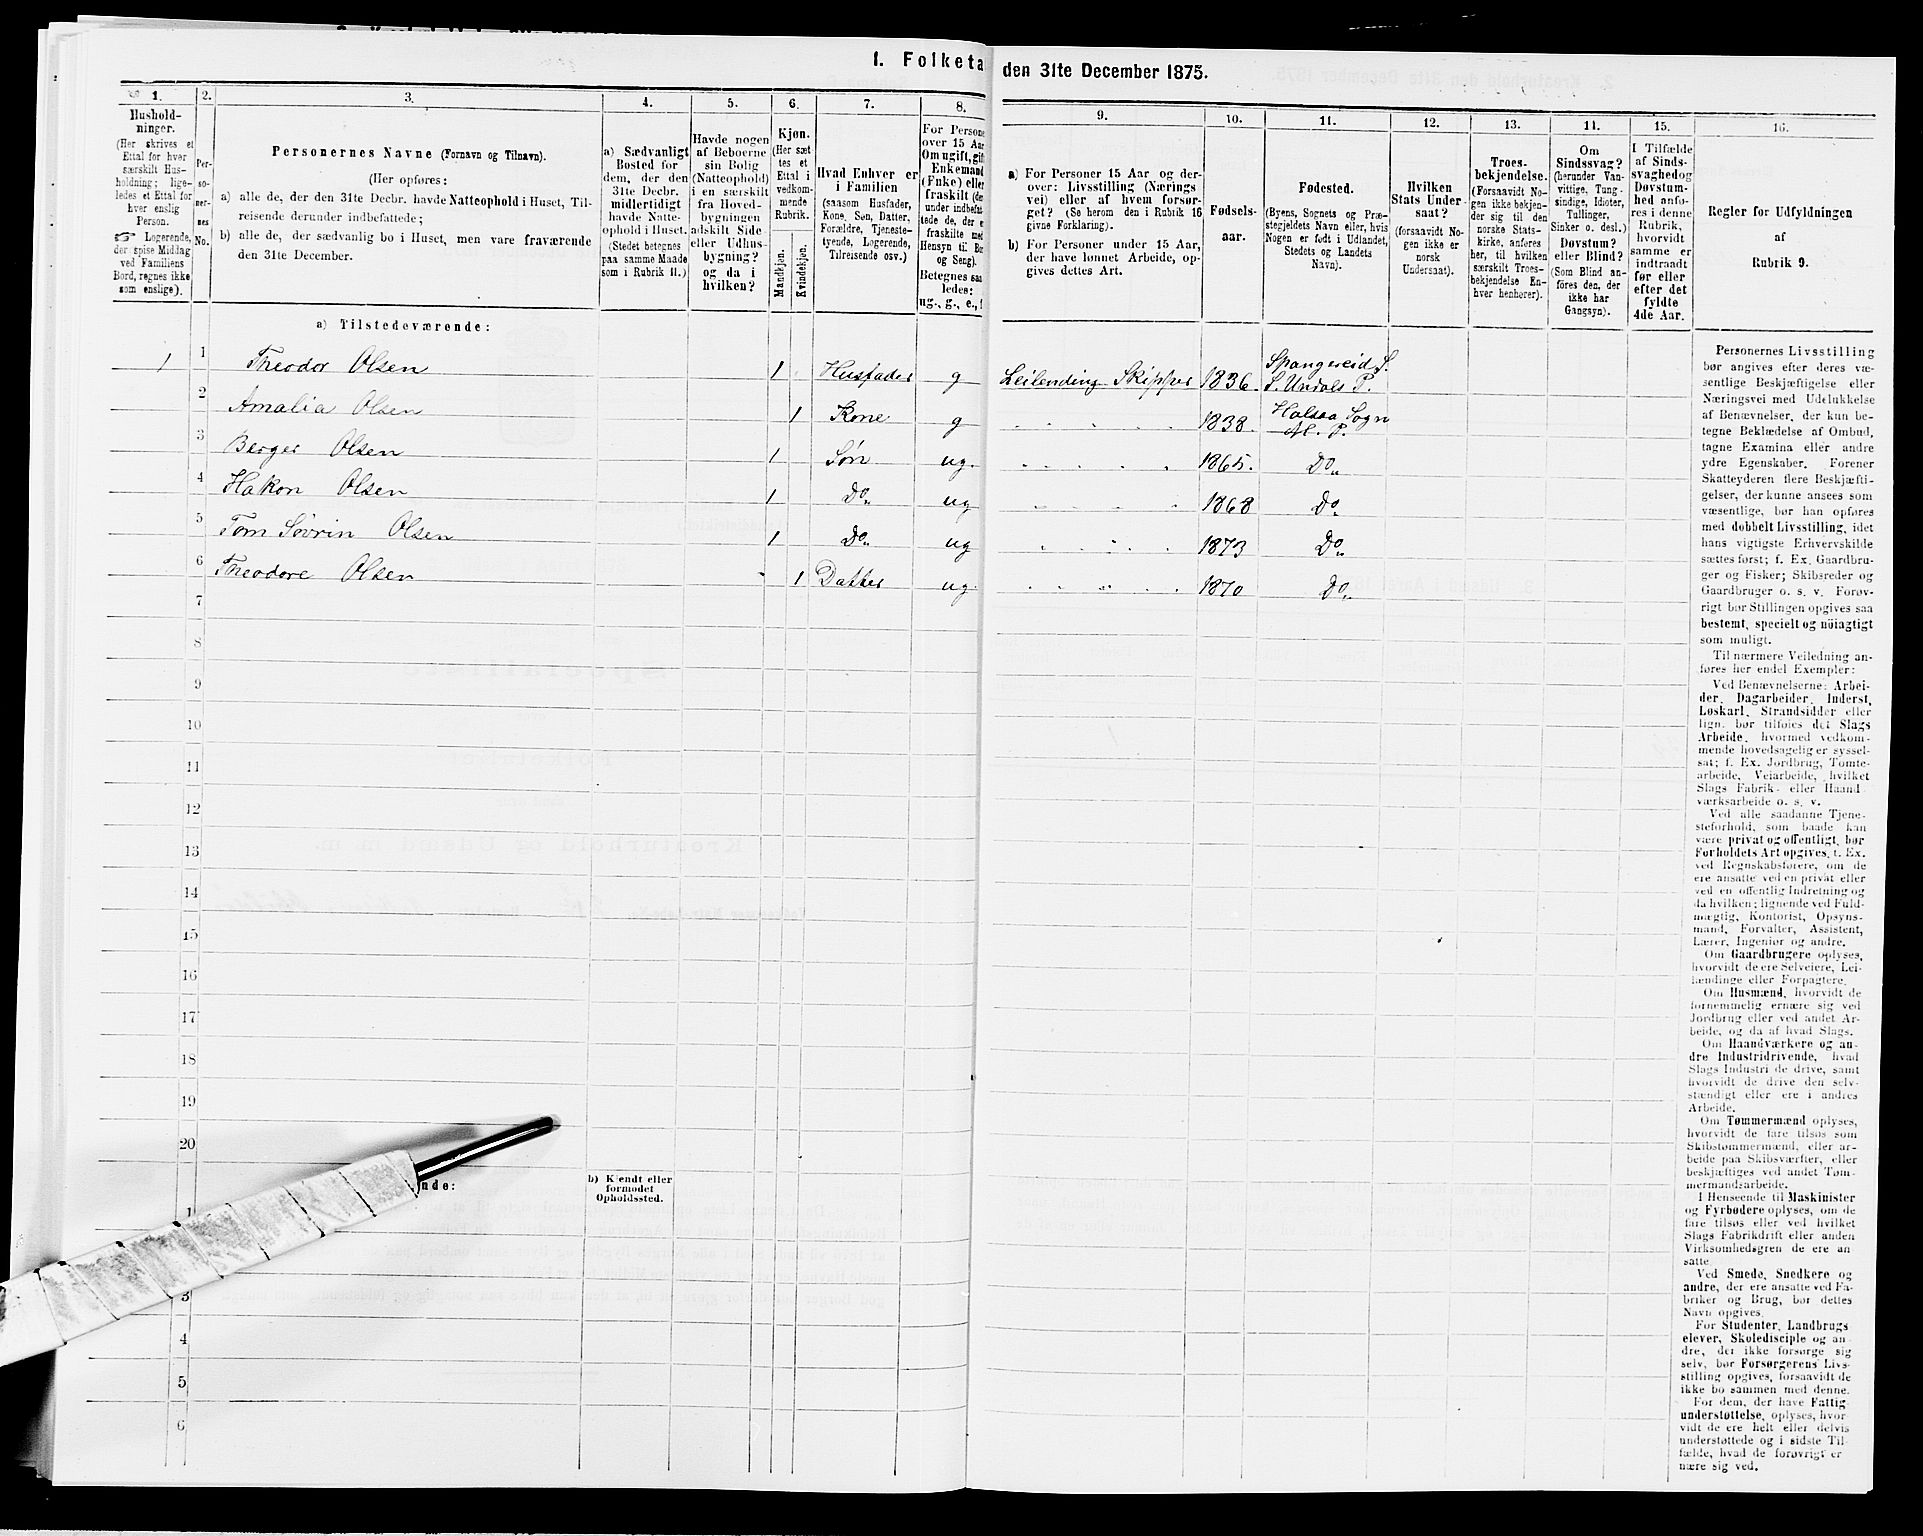 1. Folketa
den 31te December 1875.
1.
2.
3.
4.
5.
6.
7.
8.
9.
10.
11.
12.
13.
14.
15.
16.
Hushold-
ninger.
(Her skrives et
Ettal for hver
særskilt Hus-
holdning; lige-
ledes et Ettal for
hver enslig
Person.
☞ Logerende,
der spise Middag
ved Familiens
Bord, regnes ikke
som enslige).
Per-
so-
ner-
nes
No.
Personernes Navne (Fornavn og Tilnavn).
(Her opføres:
a) alle de, der den 31te Decbr. havde Natteophold i Huset, Til-
reisende derunder indbefattede;
b) alle de, der sædvanlig bo i Huset, men vare fraværende
den 31te December.
a) Sædvanligt
Bosted for
dem, der den
31te Decbr.
midlertidigt
havde Natte-
ophold i Huset.
(Stedet betegnes
paa samme Maade
som i Rubrik 11.)
Havde nogen
af Beboerne
sin Bolig
(Natteophold)
i en særskilt
fra Hoved-
bygningen
adskilt Side
eller Udhus-
bygning?
og da i
hvilken?
Kjøn.
(Her sæt
tes et
Ettal i
vedkom-
mende
Rubrik.
Mandkjøn.
Kvindekjøn.
Hvad Enhver er
i Familien
(saasom Husfader,
Kone, Søn, Datter,
Forældre, Tjeneste-
tyende, Logerende,
Tilreisende osv.)
For Persone
over 15 Aar
Om ugift, gift
Enkemand
(Enke) eller
fraskilt (der
under indbefat
tede de, der e
fraskilte med
Hensyn til Bo
og Seng).
Betegnes saa
ledes:
ug., g., e., f
a) For Personer 15 Aar og der-
over: Livsstilling (Nærings
vei) eller af hvem forsør-
get? (Se herom den i Rubrik 16
givne Forklaring).
b) For Personer under 15 Aar,
der have lønnet Arbeide, op-
gives dettes Art.
Fødsels-
aar.
Fødested.
(Byens, Sognets og Præ-
stegjeldets Navn eller, hvis
Nogen er født i Udlandet,
Stedets og Landets
Navn).
Hvilken
Stats Under-
saat?
(forsaavidt No-
gen ikke er
norsk
Undersaat).
Troes-
bekjendelse.
(Forsaavidt No-
gen ikke bekjen-
der sig til den
norske Stats-
kirke, anføres
her, til hvilken
særskilt Troes-
bekjendelse En-
hver henhører).
Om
Sindssvag?
(herunder Van-
vittige, Tung-
sindige, Idioter,
Tullinger,
Sinker o. desl.)
Døvstum?
eller Blind?
(Som Blind an-
føres den, der
ikke har
Gangsyn).
I Tilfælde
af Sinds-
svaghed og
Døvstum-
hed anfø-
res i denne
Rubrik,
hvorvidt
samme er
indtraadt
før eller
efter det
fyldte
4de Aar.
Regler for Udfyldningen
af
Rubrik 9.
a) Tilstedeværende:
1 1 Theodor Olsen 1 Husfader g Leilending Skipper 1836. Spangereid S.
S. Undals P.
2 Amalia Olsen 1 Kone g 1838. Halsaa Sogn
M. P.
3 Berger Olsen 1 Søn ug. 1865. Do
4 Hakon Olsen 1 Do ug 1868 Do
5 Tom Sövrin Olsen 1 Do ug 1873 Do
6 Theodore Olsen 1 Datter ug. 1870 Do
7
8
9
10
11
12
13
14
15
16
17
18
19
20
nde:
b) Kjendt eller
formodet
Opholdssted.
1
3
4
5
6
Personernes Livsstilling
bør angives efter deres væ-
sentlige Beskjæftigelse eller
Næringsvei med Udelukkelse
af Benævnelser, der kun be-
tegne Beklædelse af Ombud,
tagne Examina eller andre
ydre Egenskaber. Forener
Skatteyderen flere Beskjæfti-
gelser, der kunne ansees som
væsentlige, bør han opføres
med dobbelt Livsstilling, idet
hans vigtigste Erhvervskilde
sættes først; f. Ex. Gaardbru-
ger og Fisker; Skibsreder og
Gaardbruger o. s. v. Forøv-
rigt bør Stillingen opgives saa
bestemt, specielt og nöiagtigt
som muligt.
Til nærmere Veiledning an-
føres her endel Exempler:
Ved Benævnelserne: Arbei-
der, Dagarbeider, Inderst,
Løskarl, Strandsidder eller
lign. bør tilføies det Slags
Arbeide, hvormed vedkom-
mende hovedsagelig er syssel-
sat; f. Ex. Jordbrug, Tomte-
arbeide, Veiarbeide, hvilket
Slags Fabrik- eller Haand
værksarbeide o. s. v.
Ved alle saadanne Tjene-
steforhold, som baade kan
være privat og offentligt, bør
Forholdets Art opgives, f. Ex.
ved Regnskabsførere, om de
ere ansatte ved en privat eller
ved en offentlig Indretning og
da hvilken; lignende ved Fuld-
mægtig, Kontorist, Opsyns-
mand, Forvalter, Assistent,
Lærer, Ingeniør og andre.
Om Gaardbrugere oplyses,
hvorvidt de ere Selveiere, Lei-
lændinge eller Forpagtere.
Om Husmænd, hvorvidt de
fornemmelig ernære sig ved
Jordbrug eller ved andet Ar-
beide, og da af hvad Slags.
Om Haandværkere og an-
dre Industridrivende, hvad
Slags Industri de drive, samt
hvorvidt de drive den selv-
stændigt eller ere i andres
Arbeide.
Om Tømmermænd oplyses,
hvorvidt de fare tilsøs som
Skibstømmermænd, eller ar-
beide paa Skibsværfter, eller
beskjæftiges ved andet Tøm-
mermandsarbeide.
I Henseende til Maskinister
og Fyrbødere oplyses, om de
fare tilsøs eller ved hvilket
Slags Fabrikdrift eller anden
Virksomhedsgren de ere an-
satte.
Ved Smede, Snedkere og
andre, der ere ansatte ved Fa-
briker og Brug, bør dettes
Navn opgives.
For Studenter, Landbrugs
elever, Skoledisciple og an-
dre, der ikke forsørge sig
selv, bør Forsørgerens Livs-
stilling opgives, forsaavidt de
ikke bo sammen med denne.
For dem, der have Fattig
understøttelse, oplyses, hvor
vidt de ere helt eller delvis
understøttede og i sidste Til-
fælde, hvad de forøvrigt er
nære sig ved.